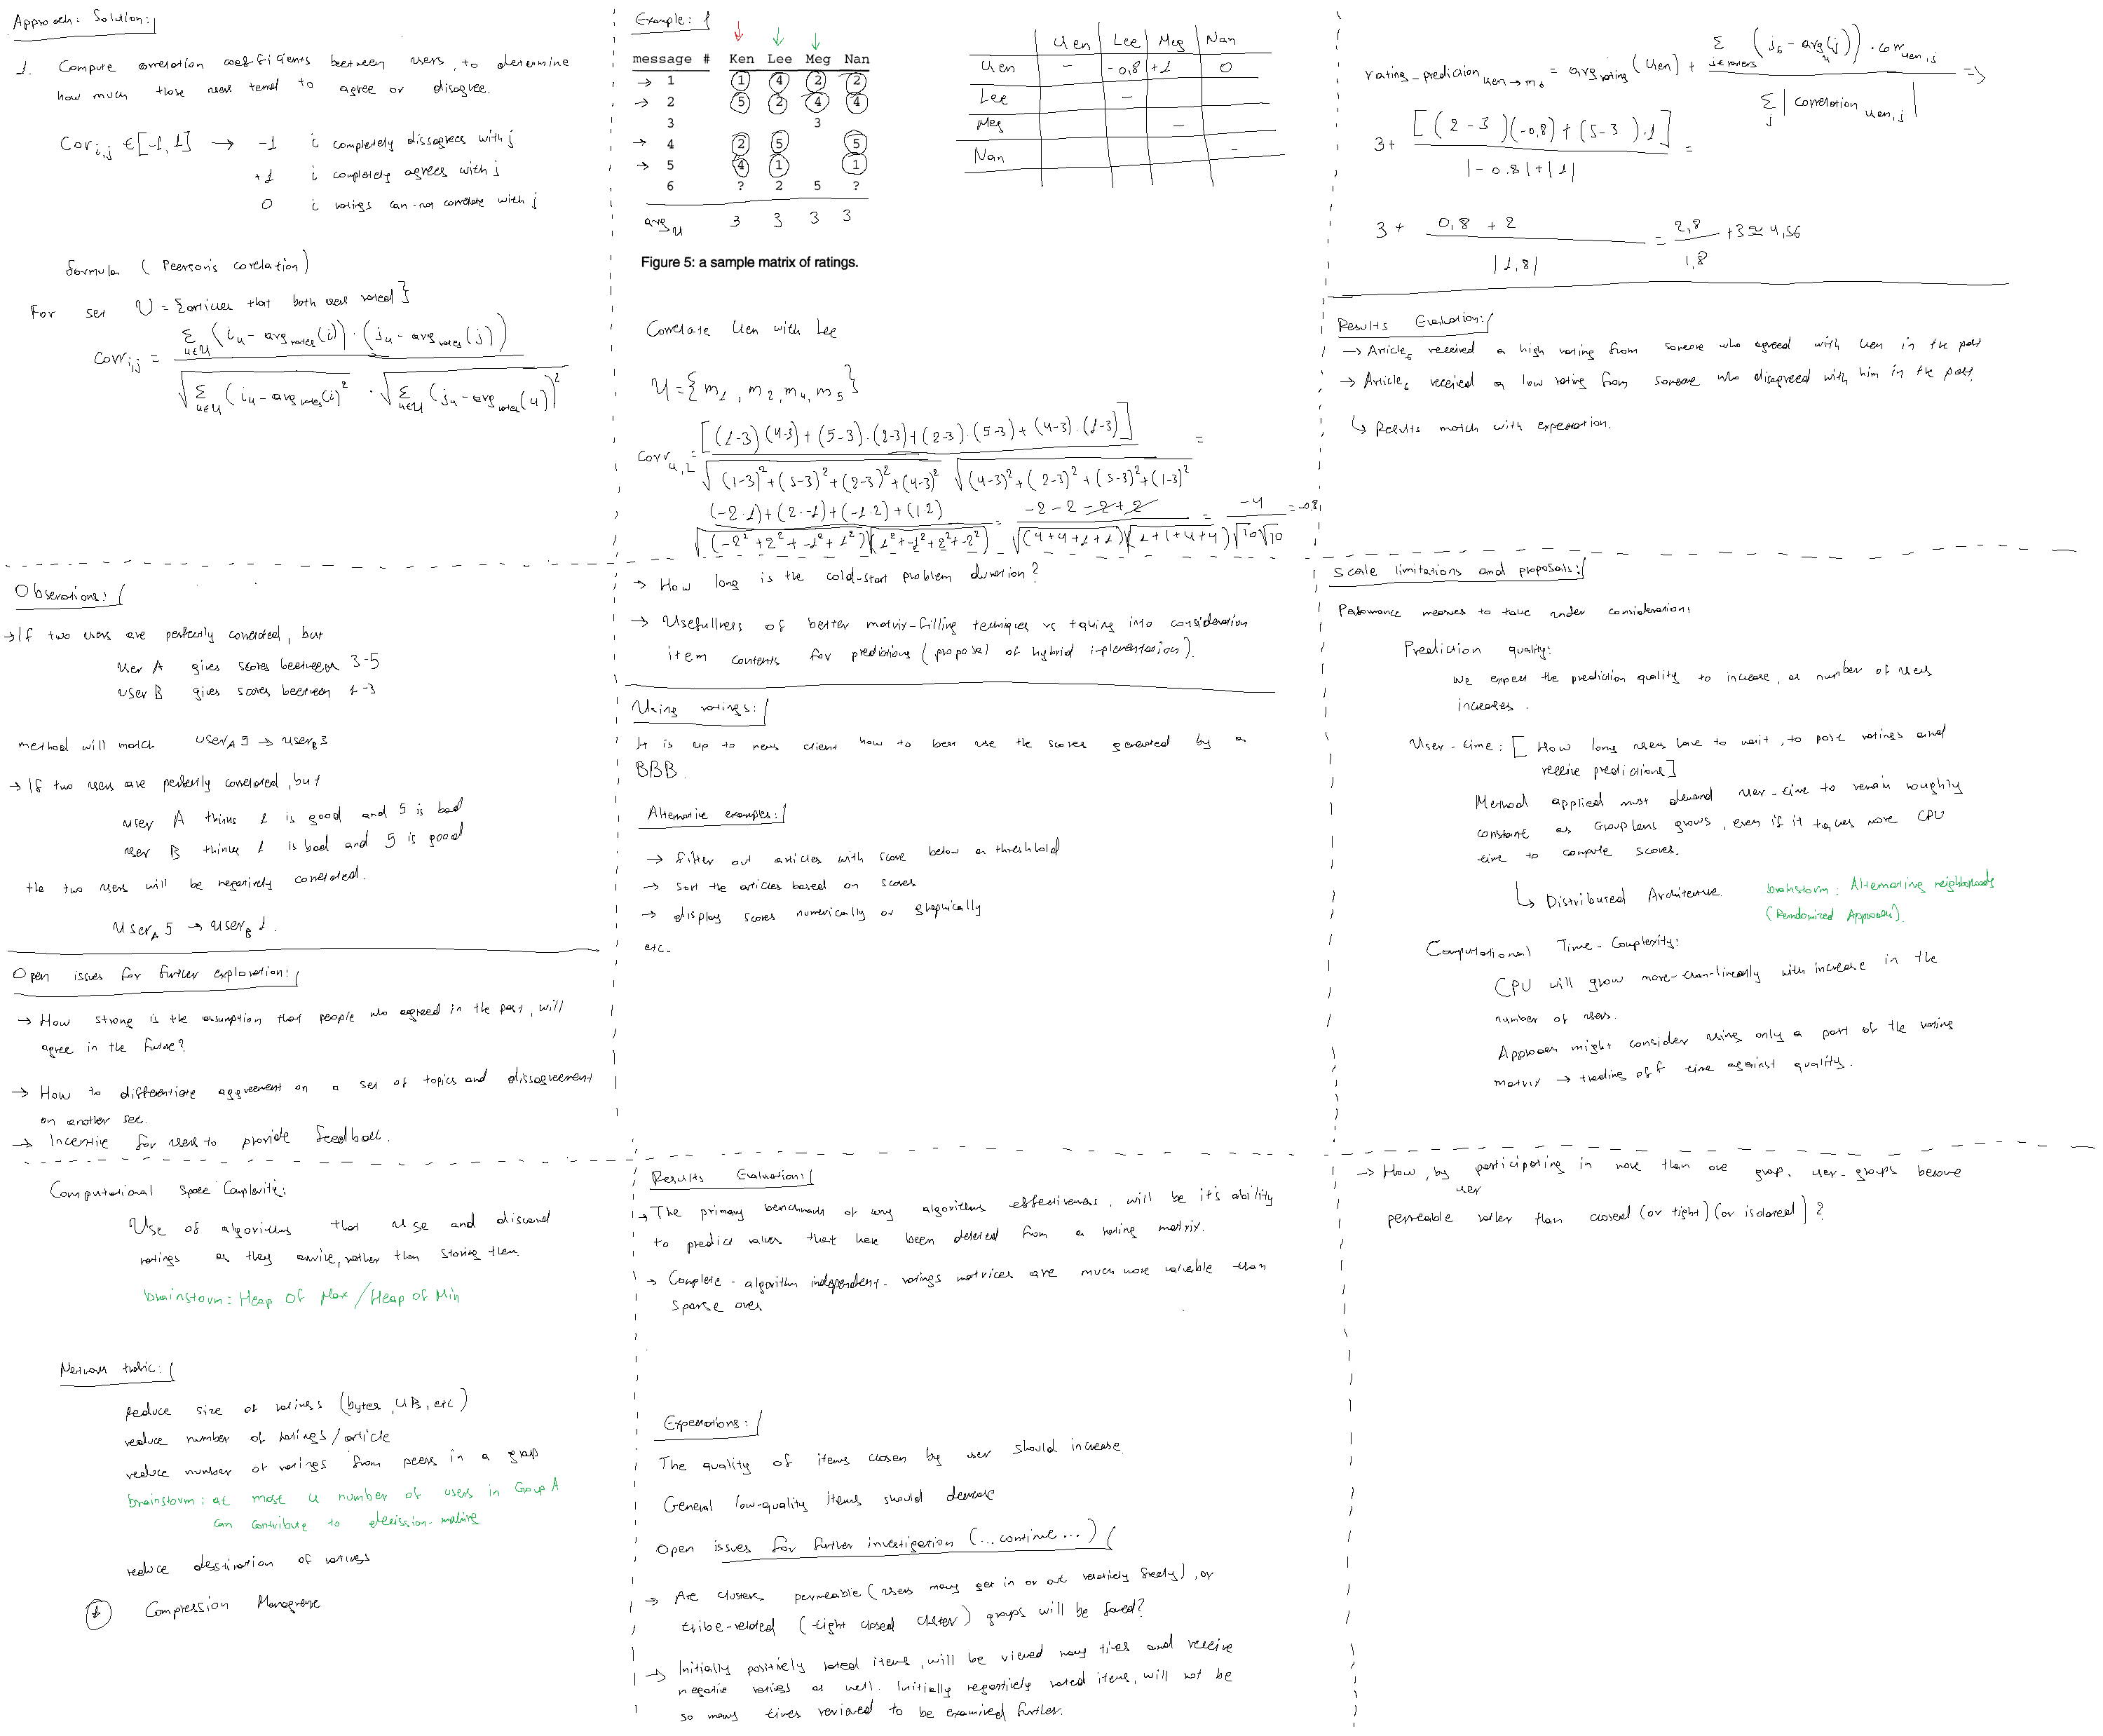 Approach: Solution:
1. Compute correlation coefficients between users, to determine
how much those users tend to agree or disagree.
Cor i,j ∈ [-1, 1] → -1 i completely dissagrees with j
+1 i completely agrees with j
0 i ratings can-not correlate with j
formula (Peerson's corelation)
For set U = {articles that both users rated}
Corr i,j = Σ u∈U (i u - avg rates (i)) · (j u - avg rates (j))
√Σ u∈U (i u - avg rates (i))² · √Σ u∈U (j u - avg rates (u))²
Example: 1
message # Ken Lee Meg Nan
→ 1 1 4 2 2
→ 2 5 2 4 4
3 3
→ 4 2 5 5
→ 5 4 1 1
6 ? 2 5 ?
avg u 3 3 3 3
Figure 5: a sample matrix of ratings.
Ken Lee Meg Nan
Ken - -0,8 +1 0
Lee -
Meg -
Nan -
Correlate Ken with Lee
U = {m1, m2, m4, m5}
Corr k,L = [(1-3)(4-3)+(5-3)·(2-3)+(2-3)·(5-3)+(4-3)·(1-3)] =
√(1-3)²+(5-3)²+(2-3)²+(4-3)² √(4-3)²+(2-3)²+(5-3)²+(1-3)²
(-2·1)+(2·-1)+(-1·2)+(1·2) = -2-2-2+2 = -4 = -0,8
√(-2²+2²+-1²+1²) √(1²+-1²+2²+-2²) √(4+4+1+1) √(1+1+4+4) √10 √10
rating_prediction ken→m6 = avg rating (Ken) + Σ j∈raters (j6 - avg u (j)) · cor ken,j =>
Σ j |correlation ken,j|
3+ [(2-3)(-0,8)+(5-3)·1] =
|-0.8|+|1|
3+ 0,8 + 2 = 2,8 +3 ≈ 4,56
|1,8| 1,8
Results Evaluation:
→ Article6 received a high rating from someone who agreed with ken in the past
→ Article6 received a low rating from someone who disagreed with him in the past.
↳ Results match with expectation.
Observations:
→ If two users are perfectly correlated, but
user A gives scores beetween 3-5
user B gives scores beetween 1-3
method will match user A 5 → user B 3
→ If two users are perfectly correlated, but
user A thinks 1 is good and 5 is bad
user B thinks 1 is bad and 5 is good
the two users will be negatively correlated.
user A 5 → user B 1.
Open issues for further exploration:
→ How strong is the assumption that people who agreed in the past, will
agree in the future?
→ How to differentiate aggreement on a set of topics and dissagreement
on another set.
→ Incentive for users to provide feedback.
→ How long is the cold-start problem duration?
→ Usefullness of better matrix-filling techniques vs taking into consideration
item contents for predictions (proposal of hybrid implementation).
Using ratings:
It is up to news client how to best use the scores generated by a
BBB.
Alternative examples:
→ filter out articles with score below a threshhold
→ sort the articles based on scores
→ display scores numerically or graphically
etc.
Scale limitations and proposals:
Performance measures to take under consideration:
Prediction quality:
We expect the prediction quality to increase, as number of users
increases.
User-time: [How long users have to wait, to post ratings and
receive predictions]
Method applied must demand user-time to remain roughly
constant as GroupLens grows, even if it takes more CPU
time to compute scores.
↳ Distributed Architecture. brainstorm: Alternating neighborhoods
(Randomized Approach).
Computational Time-Complexity:
CPU will grow more-than-linearly with increase in the
number of users.
Approach might consider using only a part of the rating
matrix → trading off time against quality.
Computational Space Complexity:
Use of algorithms that use and discard
ratings as they arrive, rather than storing them.
brainstorm: Heap of Max/Heap of Min
Network trafic:
Reduce size of ratings (bytes, KB, etc)
reduce number of ratings/article
reduce number of ratings from peers in a group
brainstorm: at most k number of users in Group A
can contribute to decission-making
reduce desstination of ratings
+ Compression
Results Evaluation:
→ The primary benchmark of any algorithms effectiveness, will be it's ability
to predict values that have been deleted from a rating matrix.
→ Complete-algorithm independent-ratings matrices are much more valuable than
sparse ones
Expectations:
The quality of items chosen by user should increase.
General low-quality items should decrease
Open issues for further investigation (...continue...)
→ Are clusters permeable (users may get in or out relatively freely), or
tribe-related (tight closed cluster) groups will be formed?
→ Initially positively rated items, will be viewed many times and receive
negative ratings as well. Initially negatively rated items, will not be
so many times reviewed to be examined further.
→ How, by user participating in more than one group, user-groups become
permeable rather than closed (or tight) (or isolated)?